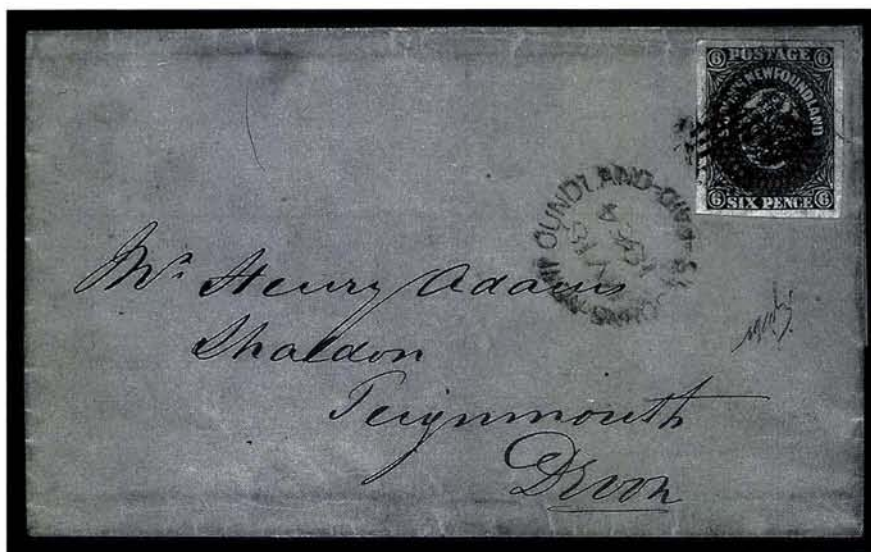 6 POSTAGE 6
ST. JOHN'S NEWFOUNDLAND
6 SIX PENCE 6
NEWFOUNDLAND PAID
Mr. Henry Adams
Shaldon
Teignmouth
Devon